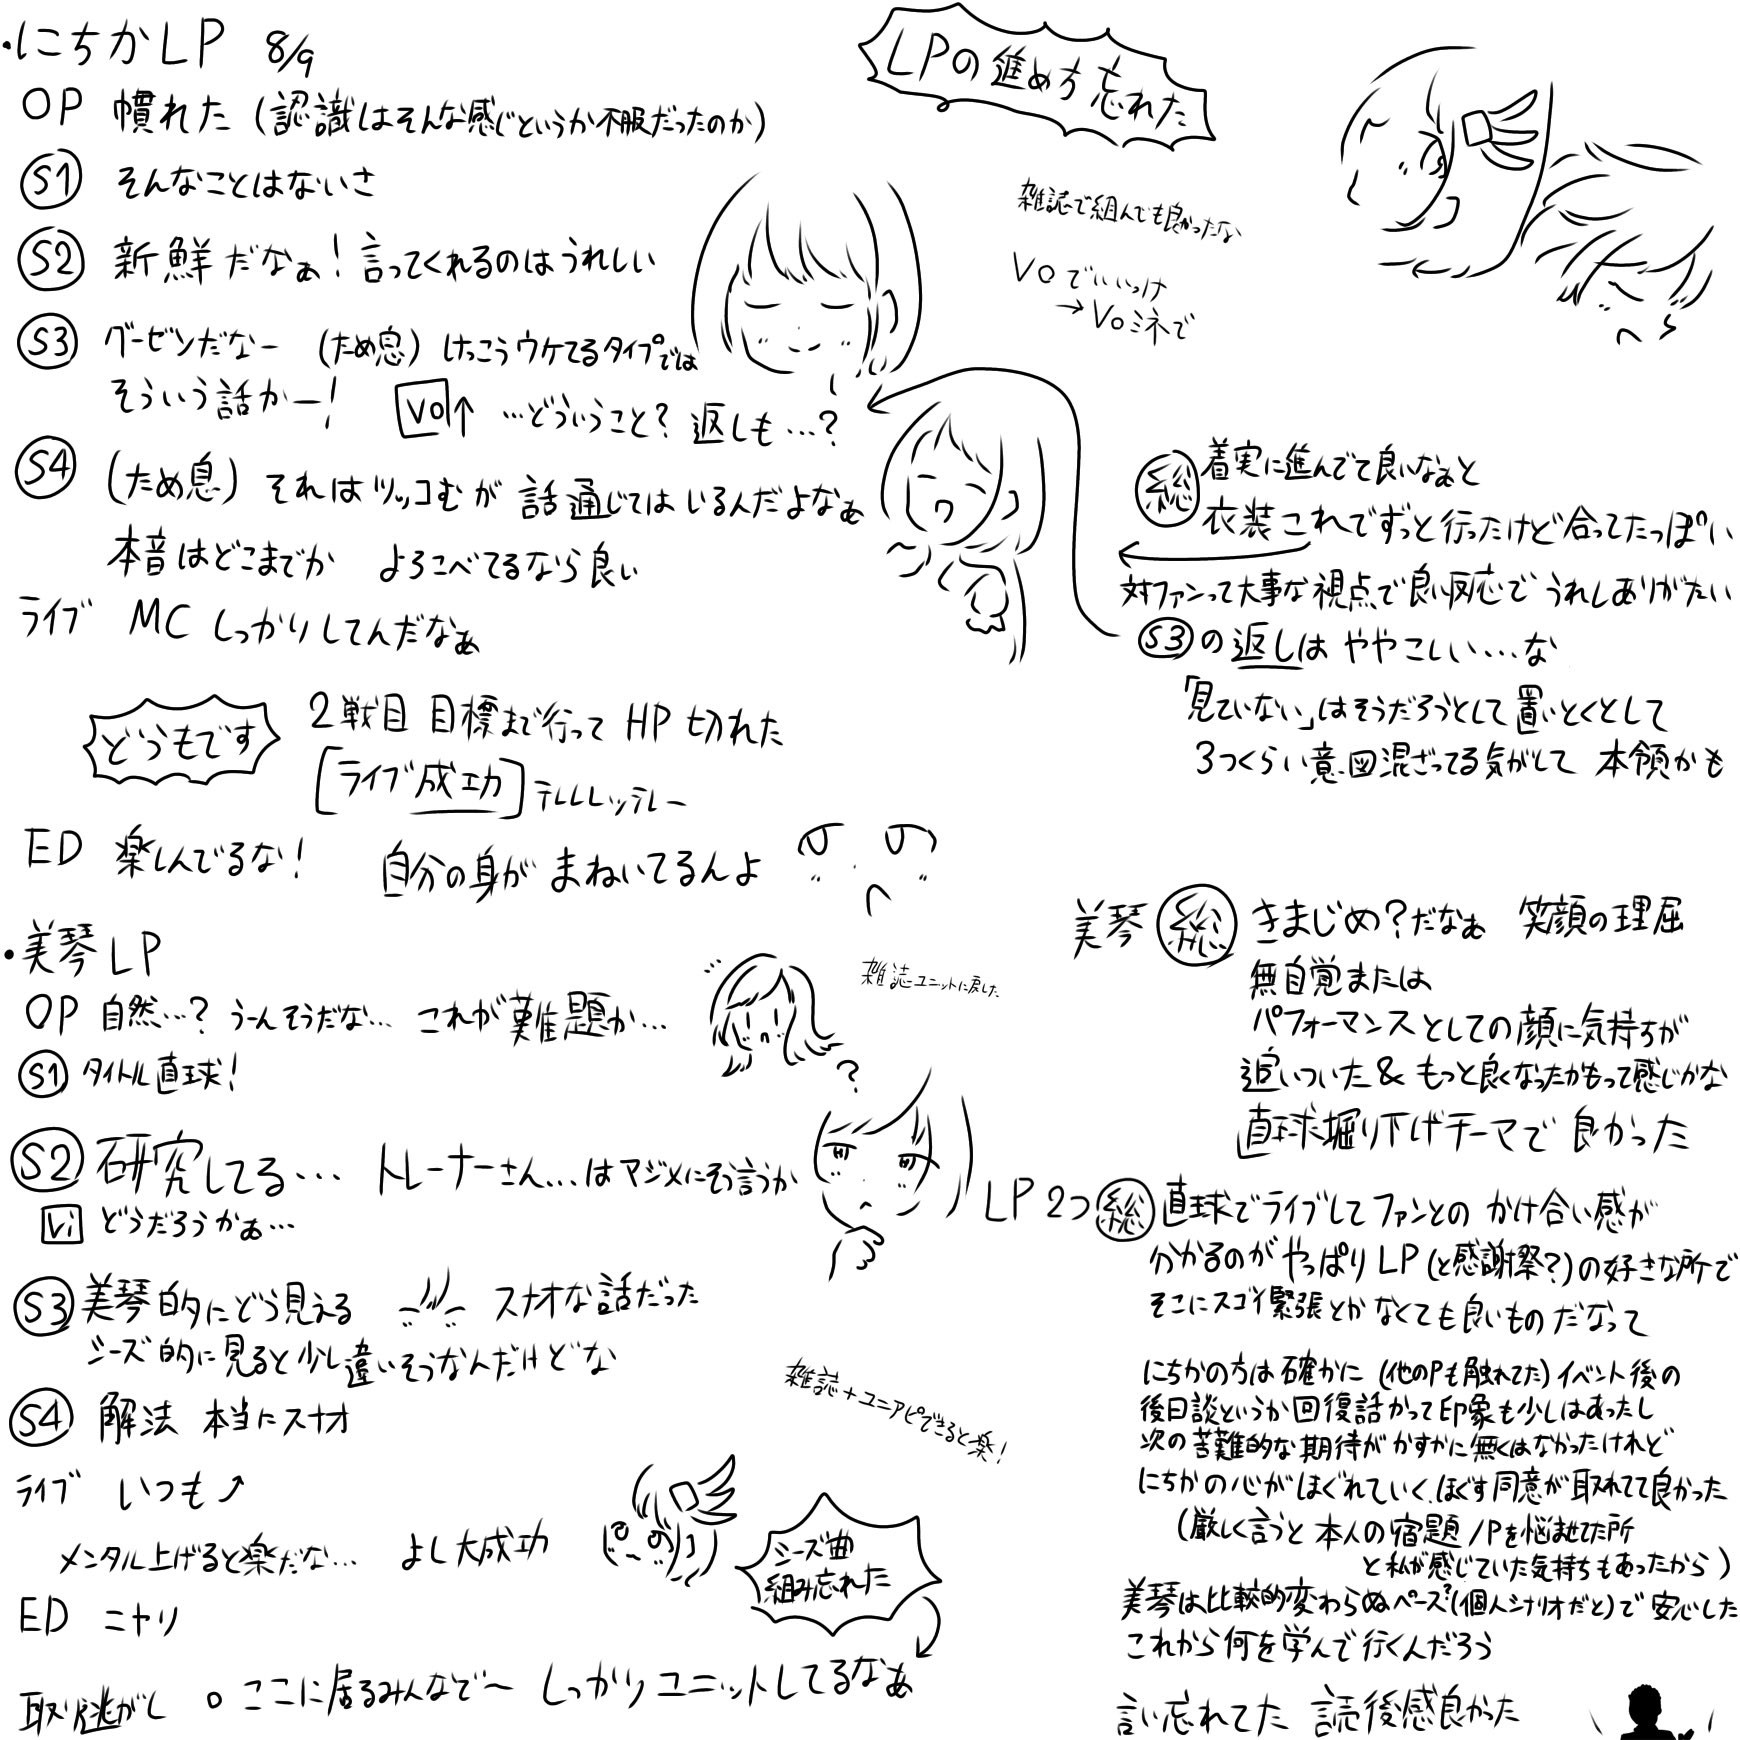 ・にちかLP 8/9
OP 慣れた (認識はそんな感じというか不服だったのか)
S1 そんなことはないさ
S2 新鮮だなぁ!言ってくれるのはうれしい
S3 グーゼンだなー (ため息) けっこうウケてるタイプでは
そういう話かー!
Vo↑ …どういうこと? 返しも…?
S4 (ため息) それはツッコむが 話通じてはいるんだよなぁ
本音はどこまでか よろこべてるなら良い
ライブ MCしっかりしてんだなぁ
どうもです
2戦目 目標まで行って HP切れた
[ライブ成功] テレレレッテレー
ED 楽しんでるな! 自分の身が まねいてるんよ
LPの進め方 忘れた
雑誌で組んでも良かったな
Voでいいっけ
→Voミネで
総 着実に進んでて良いなぁと
衣装これでずっと行ったけど合ってたっぽい
対ファンって大事な視点で良い反応で うれしありがたい
S3の返しは ややこしい…な
「見ていない」はそうだろうとして置いとくとして
3つくらい意図混ざってる気がして 本領かも
・美琴LP
OP 自然…? うーんそうだな… これが難題か…
S1 タイトル直球!
S2 研究してる… トレーナーさん…はマジメにそう言うか
Vi どうだろうかぁ…
S3 美琴的にどう見える スナオな話だった
シーズ的に見ると少し違いそうなんだけどな
S4 解法 本当にスナオ
ライブ いつも↗
メンタル上げると楽だな… よし大成功
ED ニヤリ
取り逃がし ○ここに居るみんなで〜 しっかりユニットしてるなぁ
雑誌ユニットに戻した
?
雑誌+ユニアピできると楽!
シーズ曲
組み忘れた
美琴 総 きまじめ?だなぁ 笑顔の理屈
無自覚または
パフォーマンスとしての顔に気持ちが
追いついた&もっと良くなったかもって感じかな
直球掘り下げテーマで 良かった
LP2つ 総 直球でライブしてファンとの かけ合い感が
分かるのがやっぱりLP(と感謝祭?)の好きな所で
そこにスゴイ緊張とかなくても良いものだなって
にちかの方は確かに (他のPも触れてた) イベント後の
後日談というか回復話かって印象も少しはあったし
次の苦難的な期待がかすかに無くはなかったけれど
にちかの心がほぐれていく、ほぐす同意が取れてて良かった
(厳しく言うと 本人の宿題/Pを悩ませてた所
と私が感じていた気持ちもあったから)
美琴は比較的変わらぬペース?(個人シナリオだと)で 安心した
これから何を学んで行くんだろう
言い忘れてた 読後感良かった